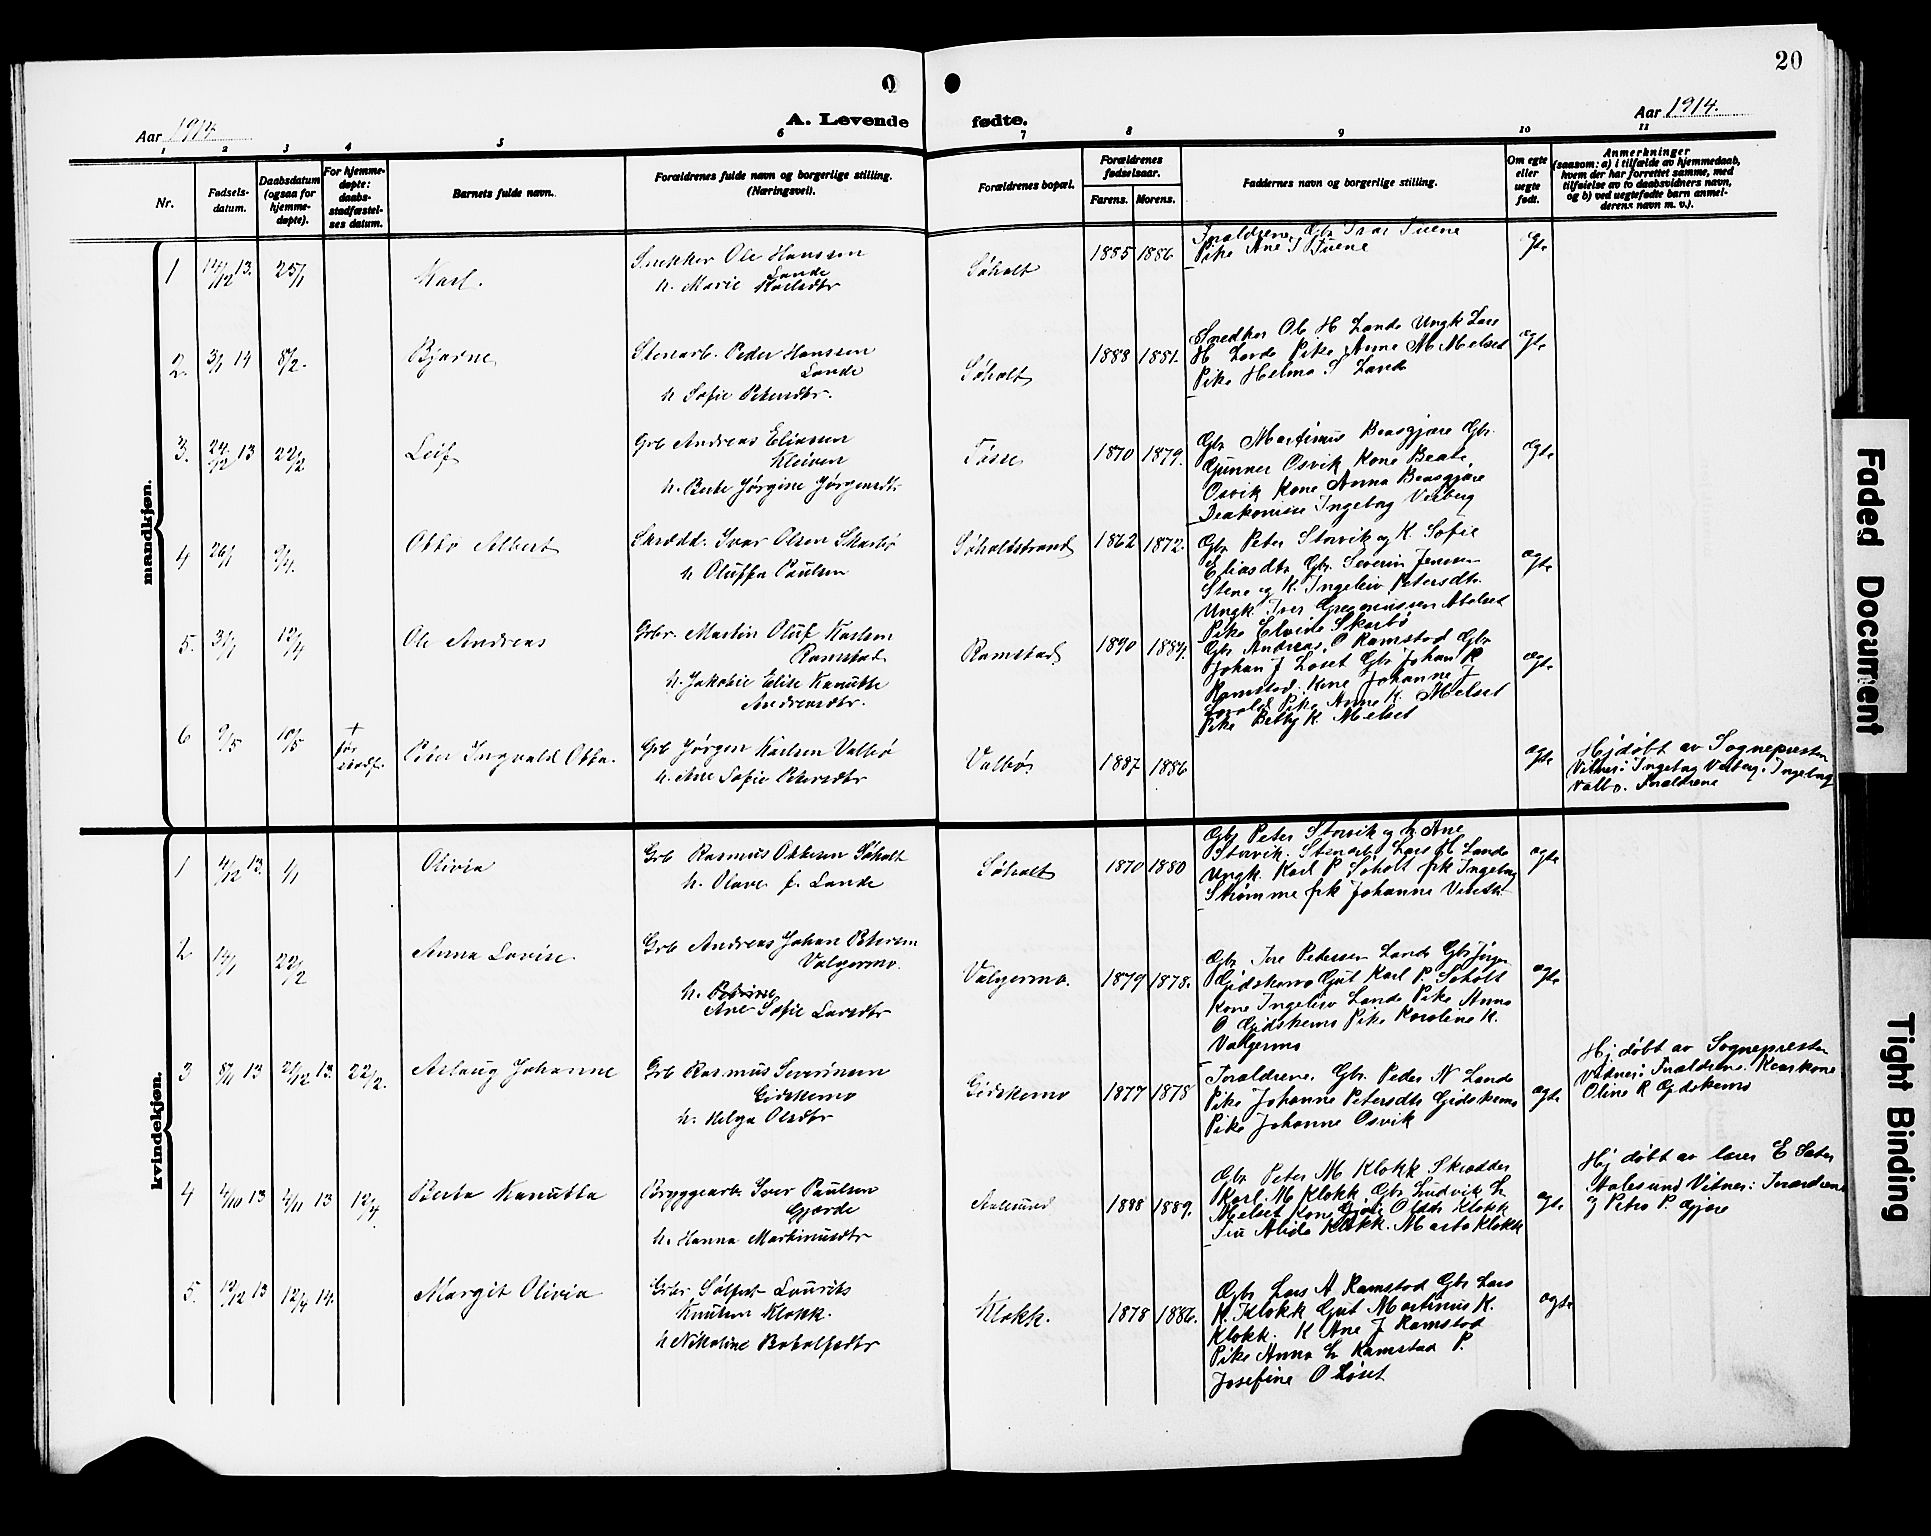 20
A. Levende fødte.
Aar 1914.
Aar 1914.
1 2 3 4 5 6 7 8 9 10 11
Nr.
Fødsels-
datum.
Daabsdatum
(ogsaa for
hjemme-
døpte).
For hjemme-
døpte:
daabs-
stadfæstel-
ses datum.
Barnets fulde navn.
Forældrenes fulde navn og borgerlige stilling.
(Næringsvei).
Forældrenes bopæl.
Forældrenes
fødselsaar.
Farens. Morens.
Faddernes navn og borgerlige stilling.
Om egte
eller
uegte
født.
Anmerkninger
(saasom: a) i tilfælde av hjemmedaab,
hvem der har forrettet samme, med
tilføielse av to daabsvidners navn,
og b) ved uegtefødte barn anmel-
derens navn m. v.).
mandkjøn.
1 14/12 13. 25/1 Karl. Snekker Ole Hanssen
Lande
h. Marie Karlsdtr Søholt 1885 1886
Forældrene, Gbr Ivar Tuene
Pike Ane I Tuene
2. 3/1 14 8/2. Bjarne Stenarb. Peder Hanssen
Lande
h Sofie Petersdtr. Søholt 1888 1881.
Snedker Ole H Lande Ungk Lars
H Lande Pike Anne M Melset ægte
Pike Helma S Lande
3. 24/12 13 22/2 Leif Grb Andreas Eliassen
Kleiven
h. Berte Jørgine Jørgensdtr Tøsse 1870 1879.
Gbr Martinus Beasgjære Gbr.
Gunner Osvik Kone Beate
Osvik Kone Anna Beasgjære
Diakonisse Ingeborg Viberg
ægte
4 26/1 Otto Albert Skrædd. Ivar Olsen Skarbø
h Oluffa Paulsen Søholtstrand 1862 1872.
Gbr Peter Storvik og K. Sofie
Eliasdtr Gbr. Severin Jensen
Stene og K. Ingeleiv Petersdtr.
Ungk. Iver Gregoriussen Abelset
Pike Elvide Skarbø
ægte
5. 31/1 12/4 Ole Andreas Grbr. Martin Oluf Karlsen
Ramstad
h. Jakobie Elise Kanutte
Andreasdtr. Ramstad 1890 1884.
Gbr Andreas O Ramstad Gbr
Johan J Løset Gbr Johan K
Ramstad. Kone Johanne J
Pike Anne K. Melset
Pike Betty K. Melset
ægte
6 9/5 10/5 + før
stadf. Peder Ingvald Otto. Grb Jørgen Karlsen Valbø
h. Ane Sofie Petersdtr Valbø. 1887 1886 ægte
Hjdøbt av Sognepresten
Vitner: Ingeborg Viberg. Ingeborg
Valbø. Forældrene
kvindekjøn.
1 4/12 13. 1/1 Olivia Grb Rasmus Ottesen Søholt
h. Olave f. Lande Søholt 1870 1880
Gbr Peter Storvik og k Ane
Storvik. Stenarb Lars H. Lande
Ungk. Karl P Søholt frk Ingeborg
Strømme frk Johanne
ægte
2 14/1 22/2 Anna Lovise. Grb Andreas Johan Petersen
Valgermo.
h. Petrine
Ane Sofie Larsdtr Valgermo. 1879 1878.
Gbr Tore Petersen Lande Gbr Jørgen
Gidskemo Gut Karl P. Søholt
Kone Ingeleiv Lande Pike Anna
O Gidskemo Pike Karoline K.
Valgermo
ægte
3 8/11 13 21/12 13. 22/2. Aslaug Johanne Grb Rasmus Severinsen
Gidskemo
h. Helga Olsdtr Gidskemo 1877 1878
Forældrene. Gbr. Peder N Lande
Pike Johanne Petersdtr Gidskemo
Pike Johanne Osvik
ægte
Hj døbt av Sognepresten
Vidner: Forældrene. Kaarkone
Oline R Gidskemo
4 4/10 13 4/11 13 12/4 Berta Kanutta Bryggearb. Iver Paulsen
Gjærde
h. Hanna Martinusdtr Aalesund 1888 1889.
Gbr Peter M Klokk Skrædder
Karl M Klokk Gbr Ludvik L
Melset Kone Gjøri Oldtr Klokk
Fru Alida Klokk. Marta Klokk
ægte
Hj døbt av lærer E Sæter
Aalesund Vitner: Forældrene
og Petra P. Gjære
5. 12/12 13 12/4 14. Margit Olivia Grbr Sølfest Laurits
Knutsen Klokk.
h Nikoline Botolfsdtr Klokk. 1878 1886.
Gbr Lars A Ramstad Gbr Lars
K. Klokk Gut Martinus K.
Klokk. K Ane J Ramstad
Pike Anna L Ramstad P.
Josefine O Løset
ægte
Faded Document
Tight Binding